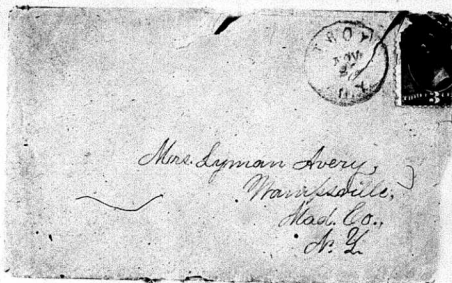 TROY
NOV
N.Y.
3
Mrs. Lyman Avery,
Wampsville,
Mad. Co.,
N. Y.